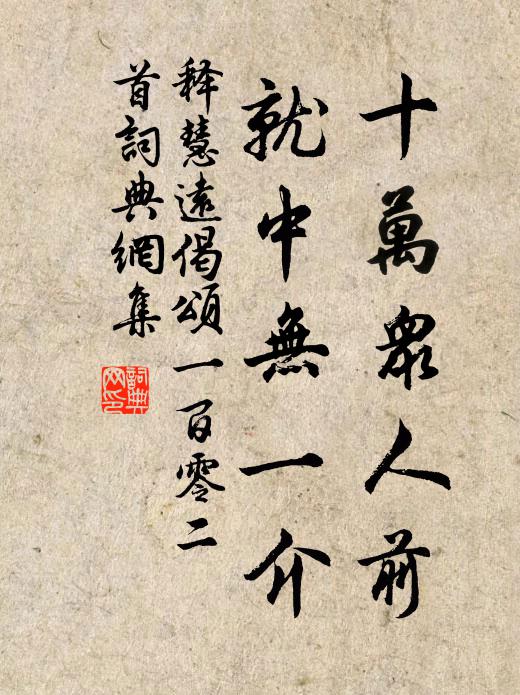 十萬衆人前
就中無一介
释慧遠偈頌一百零二
首詞典網集
詞典
网印